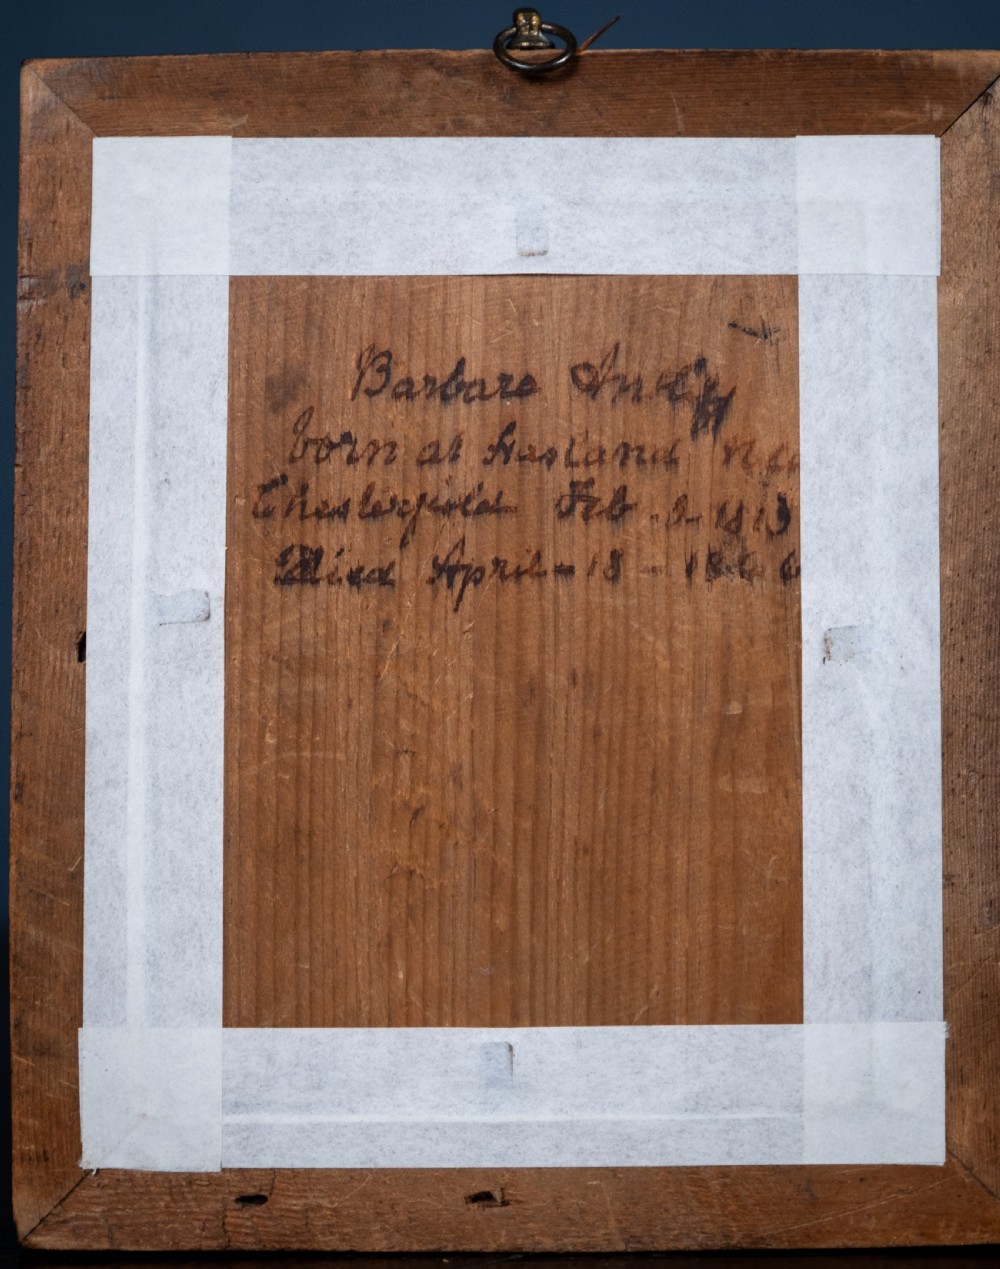 Barbara
born at Hasland
Chesterfield Feb - 1813
Died April - 18 - 1866